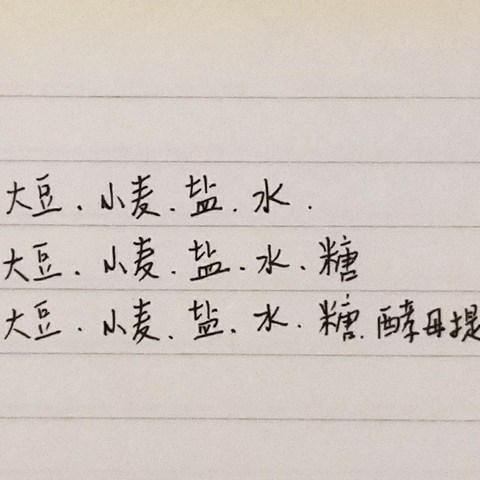 大豆、小麦、盐、水.
大豆、小麦、盐、水、糖
大豆、小麦、盐、水、糖、酵母提